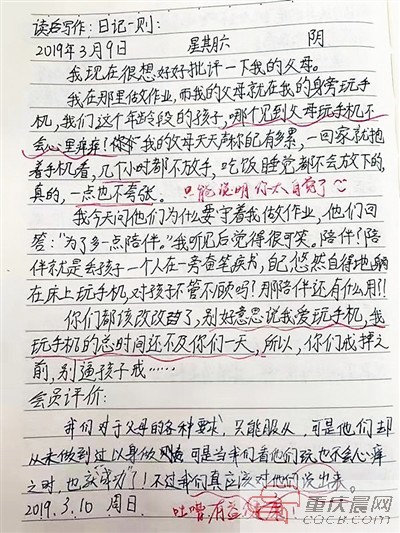 读后写作:日记一则:
2019年3月9日 星期六 阴
我现在很想好好批评一下我的父母。
我在那里做作业,而我的父母就在我的身旁玩手
机,我们这个年龄段的孩子,哪个见到父母玩手机不
会心里痒痒!你你我的父母天天声称自己有多累,一回家就抱
着手机看,几个小时都不放手,吃饭睡觉都不会放下的。
真的,一点也不夸张。只能说明你太自觉了
我今天问他们为什么要守着我做作业,他们回
答:“为了多一点陪伴。”我听见后觉得很可笑。陪伴!陪
伴就是丢孩子一个人在一旁奋笔疾书,自己悠然自得地躺
在床上玩手机,对孩子不管不顾吗?那陪伴还有什么用!!
你们都该改改了,别好意思说我爱玩手机,我
玩手机的总时间还不及你们一天,所以,你们戒掉之
前,别逼孩子戒……
会员评价:
我们对于父母的各种要求,只能服从,可是他们却
从未做到过以身做则,可是当我们看他们玩也不会心痒
之时,也就“成功”了!不过我们真应该对他们说出来。
2019.3.10 周日. 吐嘈有益健康
重庆晨网
CQCB.COM